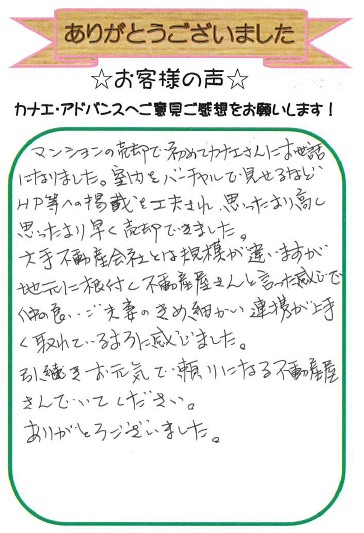 ありがとうございました
☆お客様の声☆
カナエ・アドバンスへご意見ご感想をお願いします！
マンションの売却で初めてカナエさんにお世話
になりました。室内をバーチャルで見せるなど
HP等への掲載を工夫され、思ったより高く
思ったより早く売却できました。
大手不動産会社とは規模が違いますが
地元に根付く不動産屋さんと言った感じで
仲良いご夫妻のきめ細かい連携が上手
く取れているように感じました。
引続きお元気で頼りになる不動産屋
さんでいてください。
ありがとうございました。